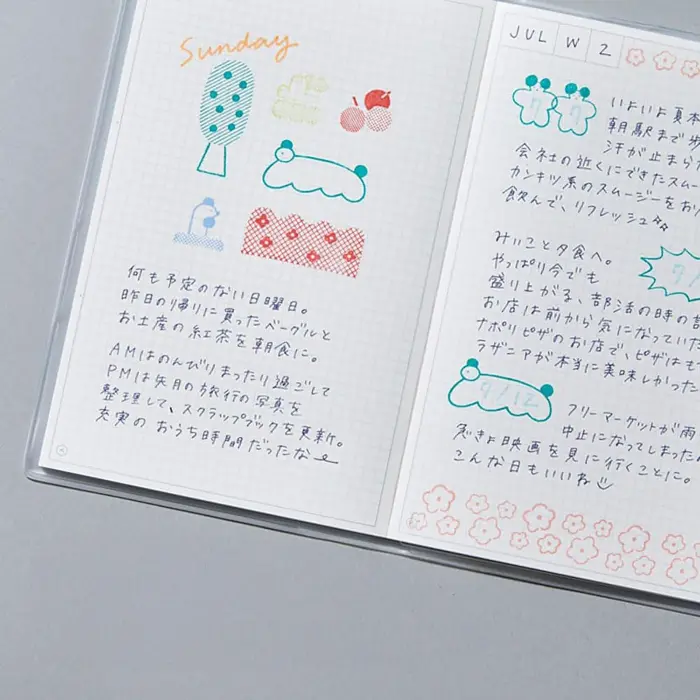 Sunday
何も予定のない日曜日。
昨日の帰りに買ったベーグルと
お土産の紅茶を朝食に。
AMはのんびりまったり過ごして
PMは先月の旅行の写真を
整理して、スクラップブックを更新。
充実の おうち時間だったな
JUL W 2
いよいよ夏本
朝駅まで歩
汗が止まら
会社の近くにできたスムー
カンキツ系のスムージーをお
飲んで、リフレッシュ
みいこと夕食へ。
やっぱり今でも
盛り上がる、部活の時の
お店は前から気になっていた
ナポリピザのお店で、ピザはも
ラザニアが本当に美味しかった
7/12
フリーマーケットが雨
中止になってしまった
急きょ映画を見に行くことに。
こんな日もいいね